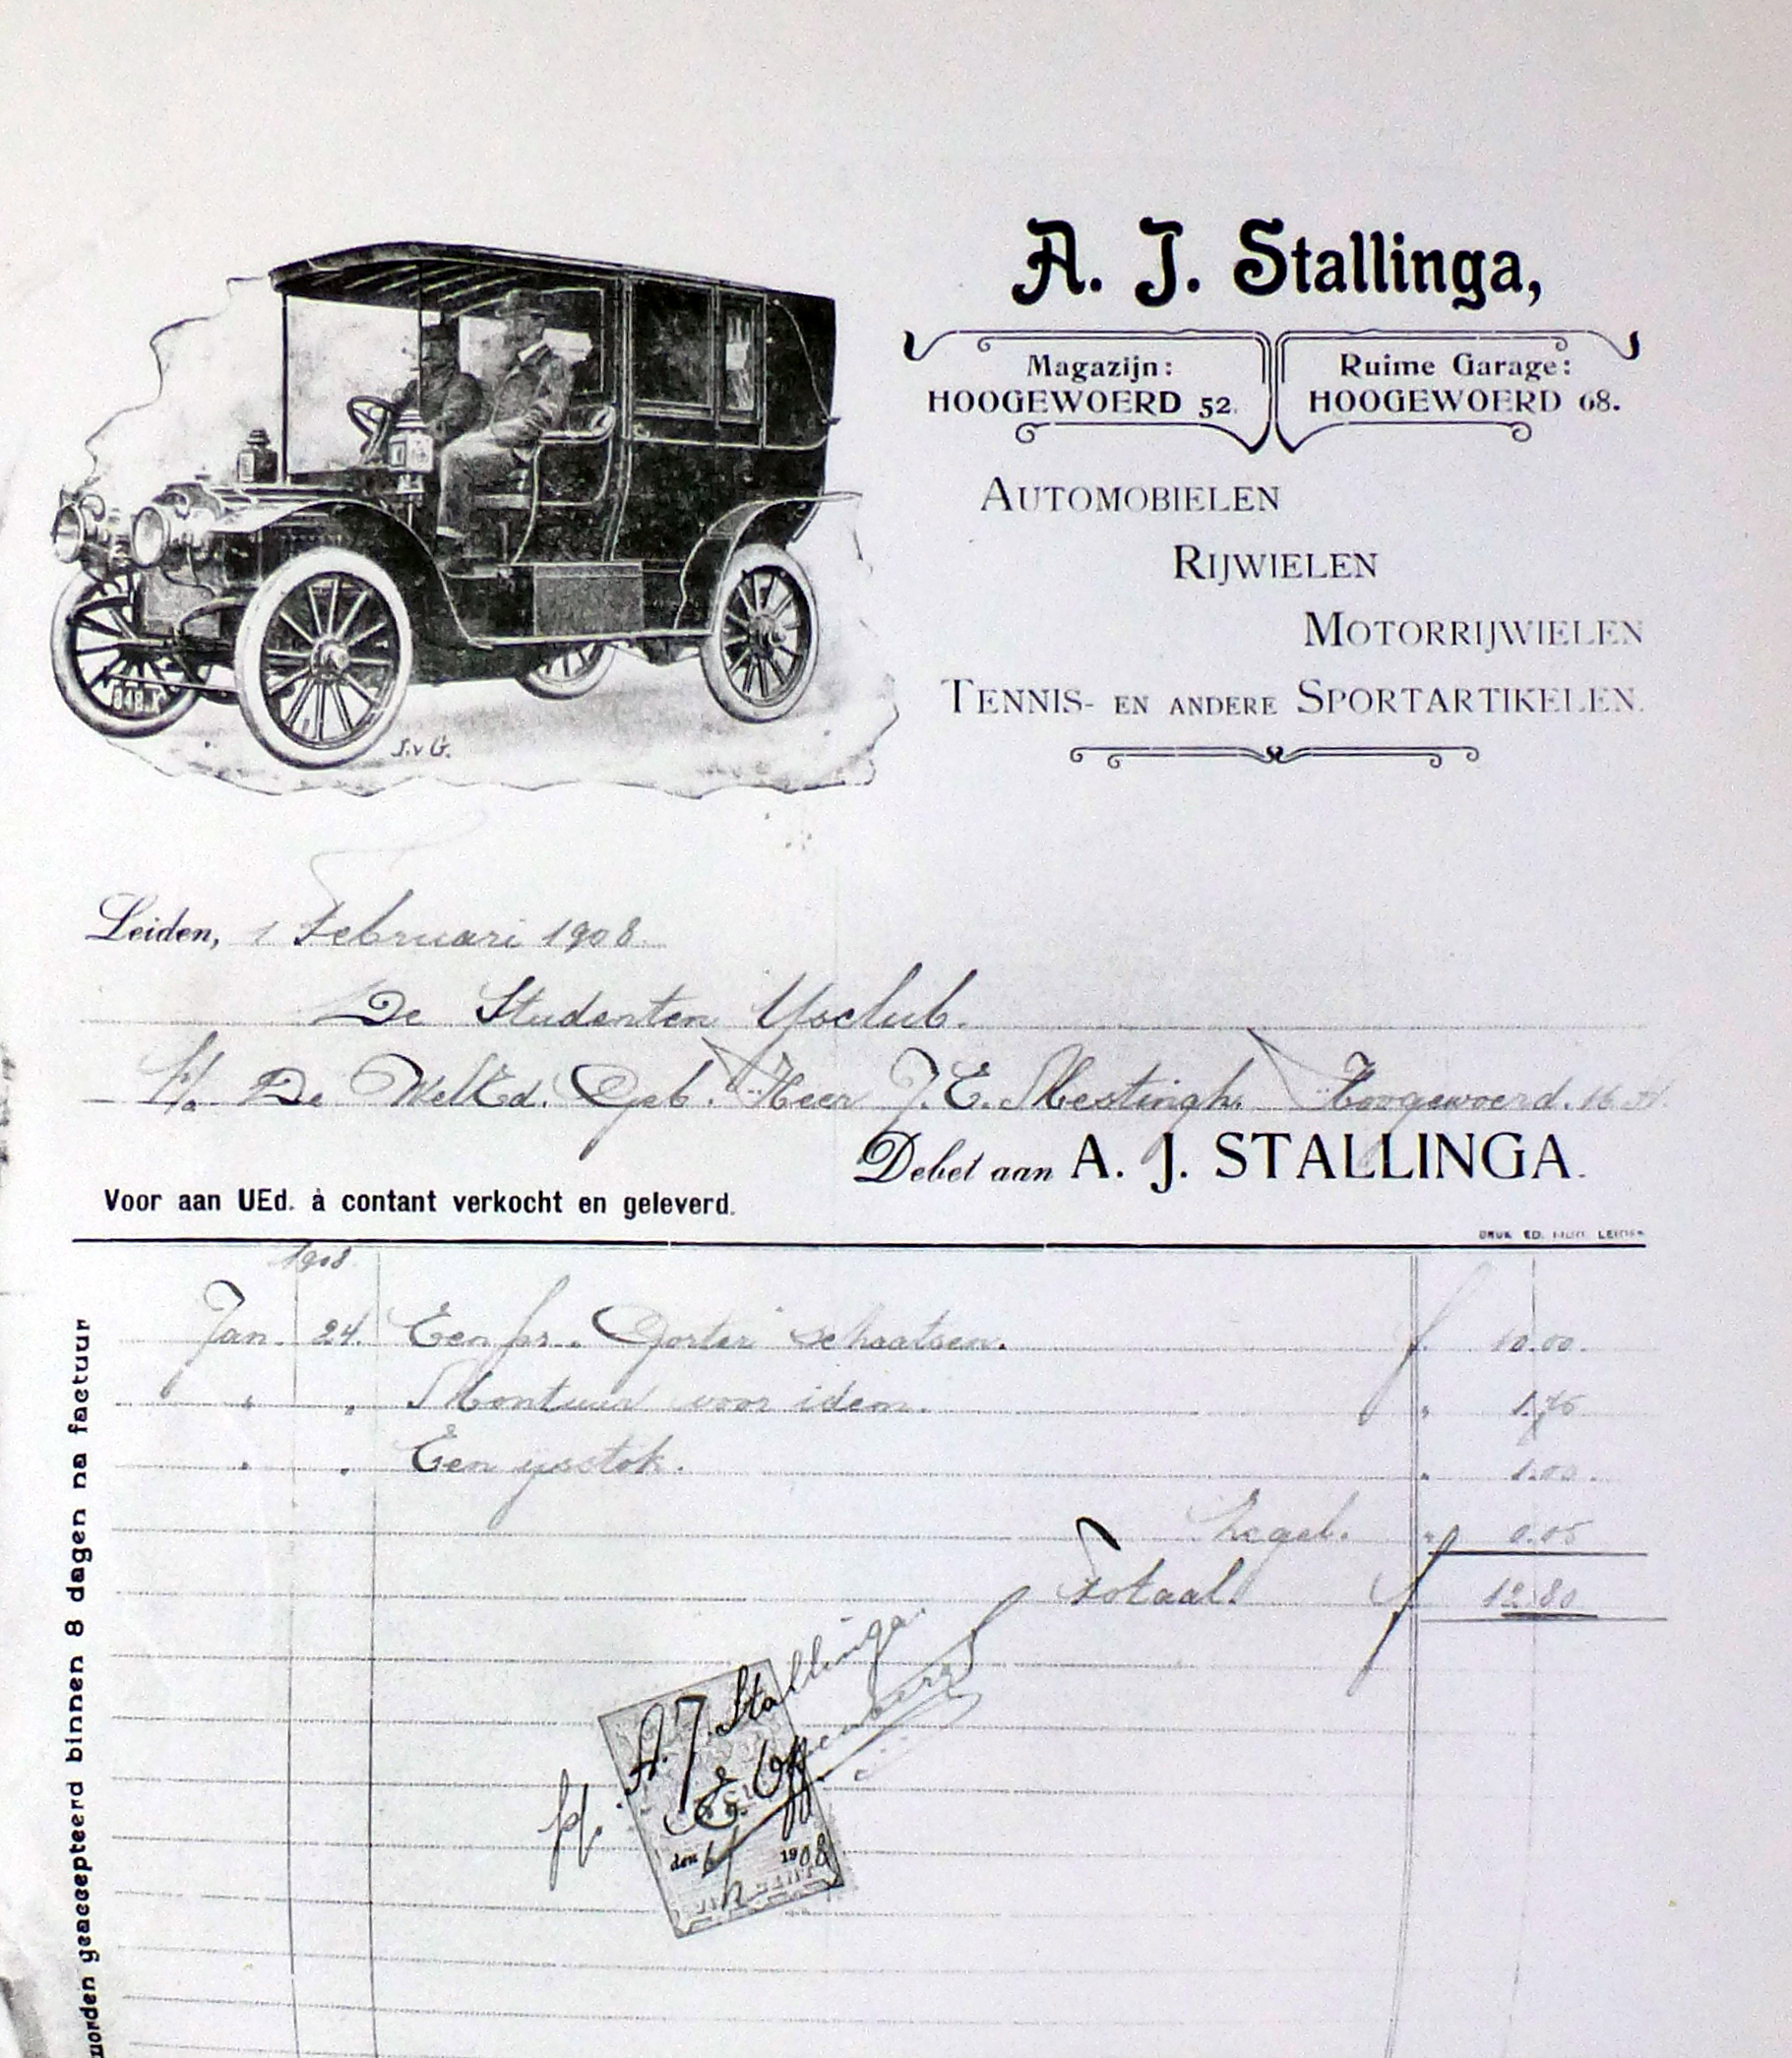 A. J. Stallinga,
Magazijn:
HOOGEWOERD 52.
Ruime Garage:
HOOGEWOERD 68.
AUTOMOBIELEN
RIJWIELEN
MOTORRIJWIELEN
TENNIS- EN ANDERE SPORTARTIKELEN.
848.X
J.v G.
Leiden, 1 Februari 1908.
De Studenten Ysclub.
p/a De WelEd. Geb. Heer J. E. Mestingh. Hoogewoerd. 16
Debet aan A. J. STALLINGA.
Voor aan UEd. à contant verkocht en geleverd.
DRUK ED. LEIDEN
1908.
Jan. 24. Een pr. Gorter schaatsen. f. 10.00.
" " Montuur voor idem. " 1.75
" " Een ysstok. " 1.00.
Zegel. " 0.05
Totaal. f 12.80
A. J. Stallinga.
pp.
den 6/2 1908
worden geaccepteerd binnen 8 dagen na factuur